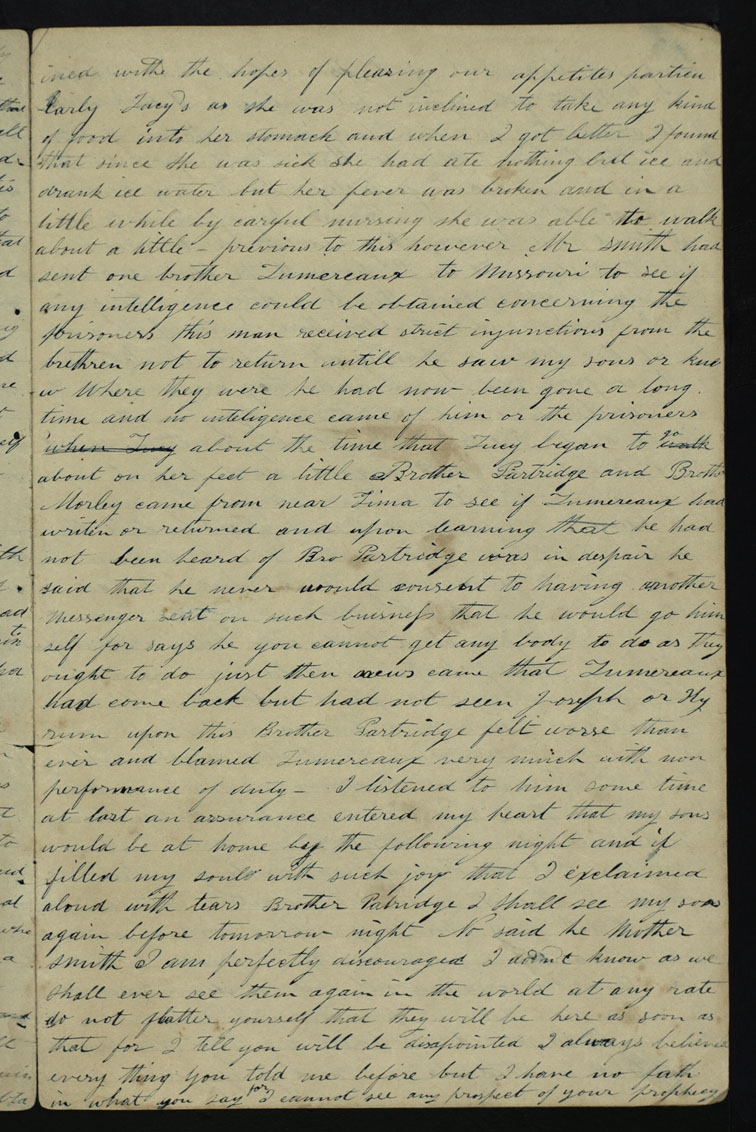 ined withe the hopes of pleasing our appetites particu
larly Lucy's as she was not inclined to take any kind
of food into her stomach and when I got better I found
that since she was sick she had ate nothing but ice and
drank ice water but her fever was broken and in a
little while by careful nursing she was able to walk
about a little - previous to this however Mr Smith had
sent one brother Lamereaux to Missouri to see if
any intelligence could be obtained concerning the
prisoners this man received strict injunctions from the
brethren not to return untill he saw my sons or kne
w Where they were he had now been gone a long
time and no inteligence came of him or the prisoners
when Lucy about the time that Lucy began to walk go
about on her feet a little Brother Partridge and Broth
Morley came from near Lima to see if Lamereaux had
writen or returned and upon learning that he had
not been heard of Bro Partridge was in despair he
said that he never would consent to having another
messenger sent on such buisness that he would go him
self for says he you cannot get any body to do as they
ought to do just then news came that Lamereaux
had come back but had not seen Joseph or Hy
rum upon this Brother Partridge felt worse than
ever and blamed Lamereaux very much with non
performance of duty - I listened to him some time
at last an assurance entered my heart that my sons
would be at home by the following night and it
filled my soul with such joy that I exclaimed
aloud with tears Brother Patridge I shall see my sons
again before tomorrow night No said he Mother
Smith I am perfectly discouraged I dont know as we
shall ever see them again in the world at any rate
do not flatter yourself that they will be here as soon as
that for I tell you will be disapointed I always believed
every thing you told me before but I have no fath
in what you say for I cannot see any prospect of your prophecy